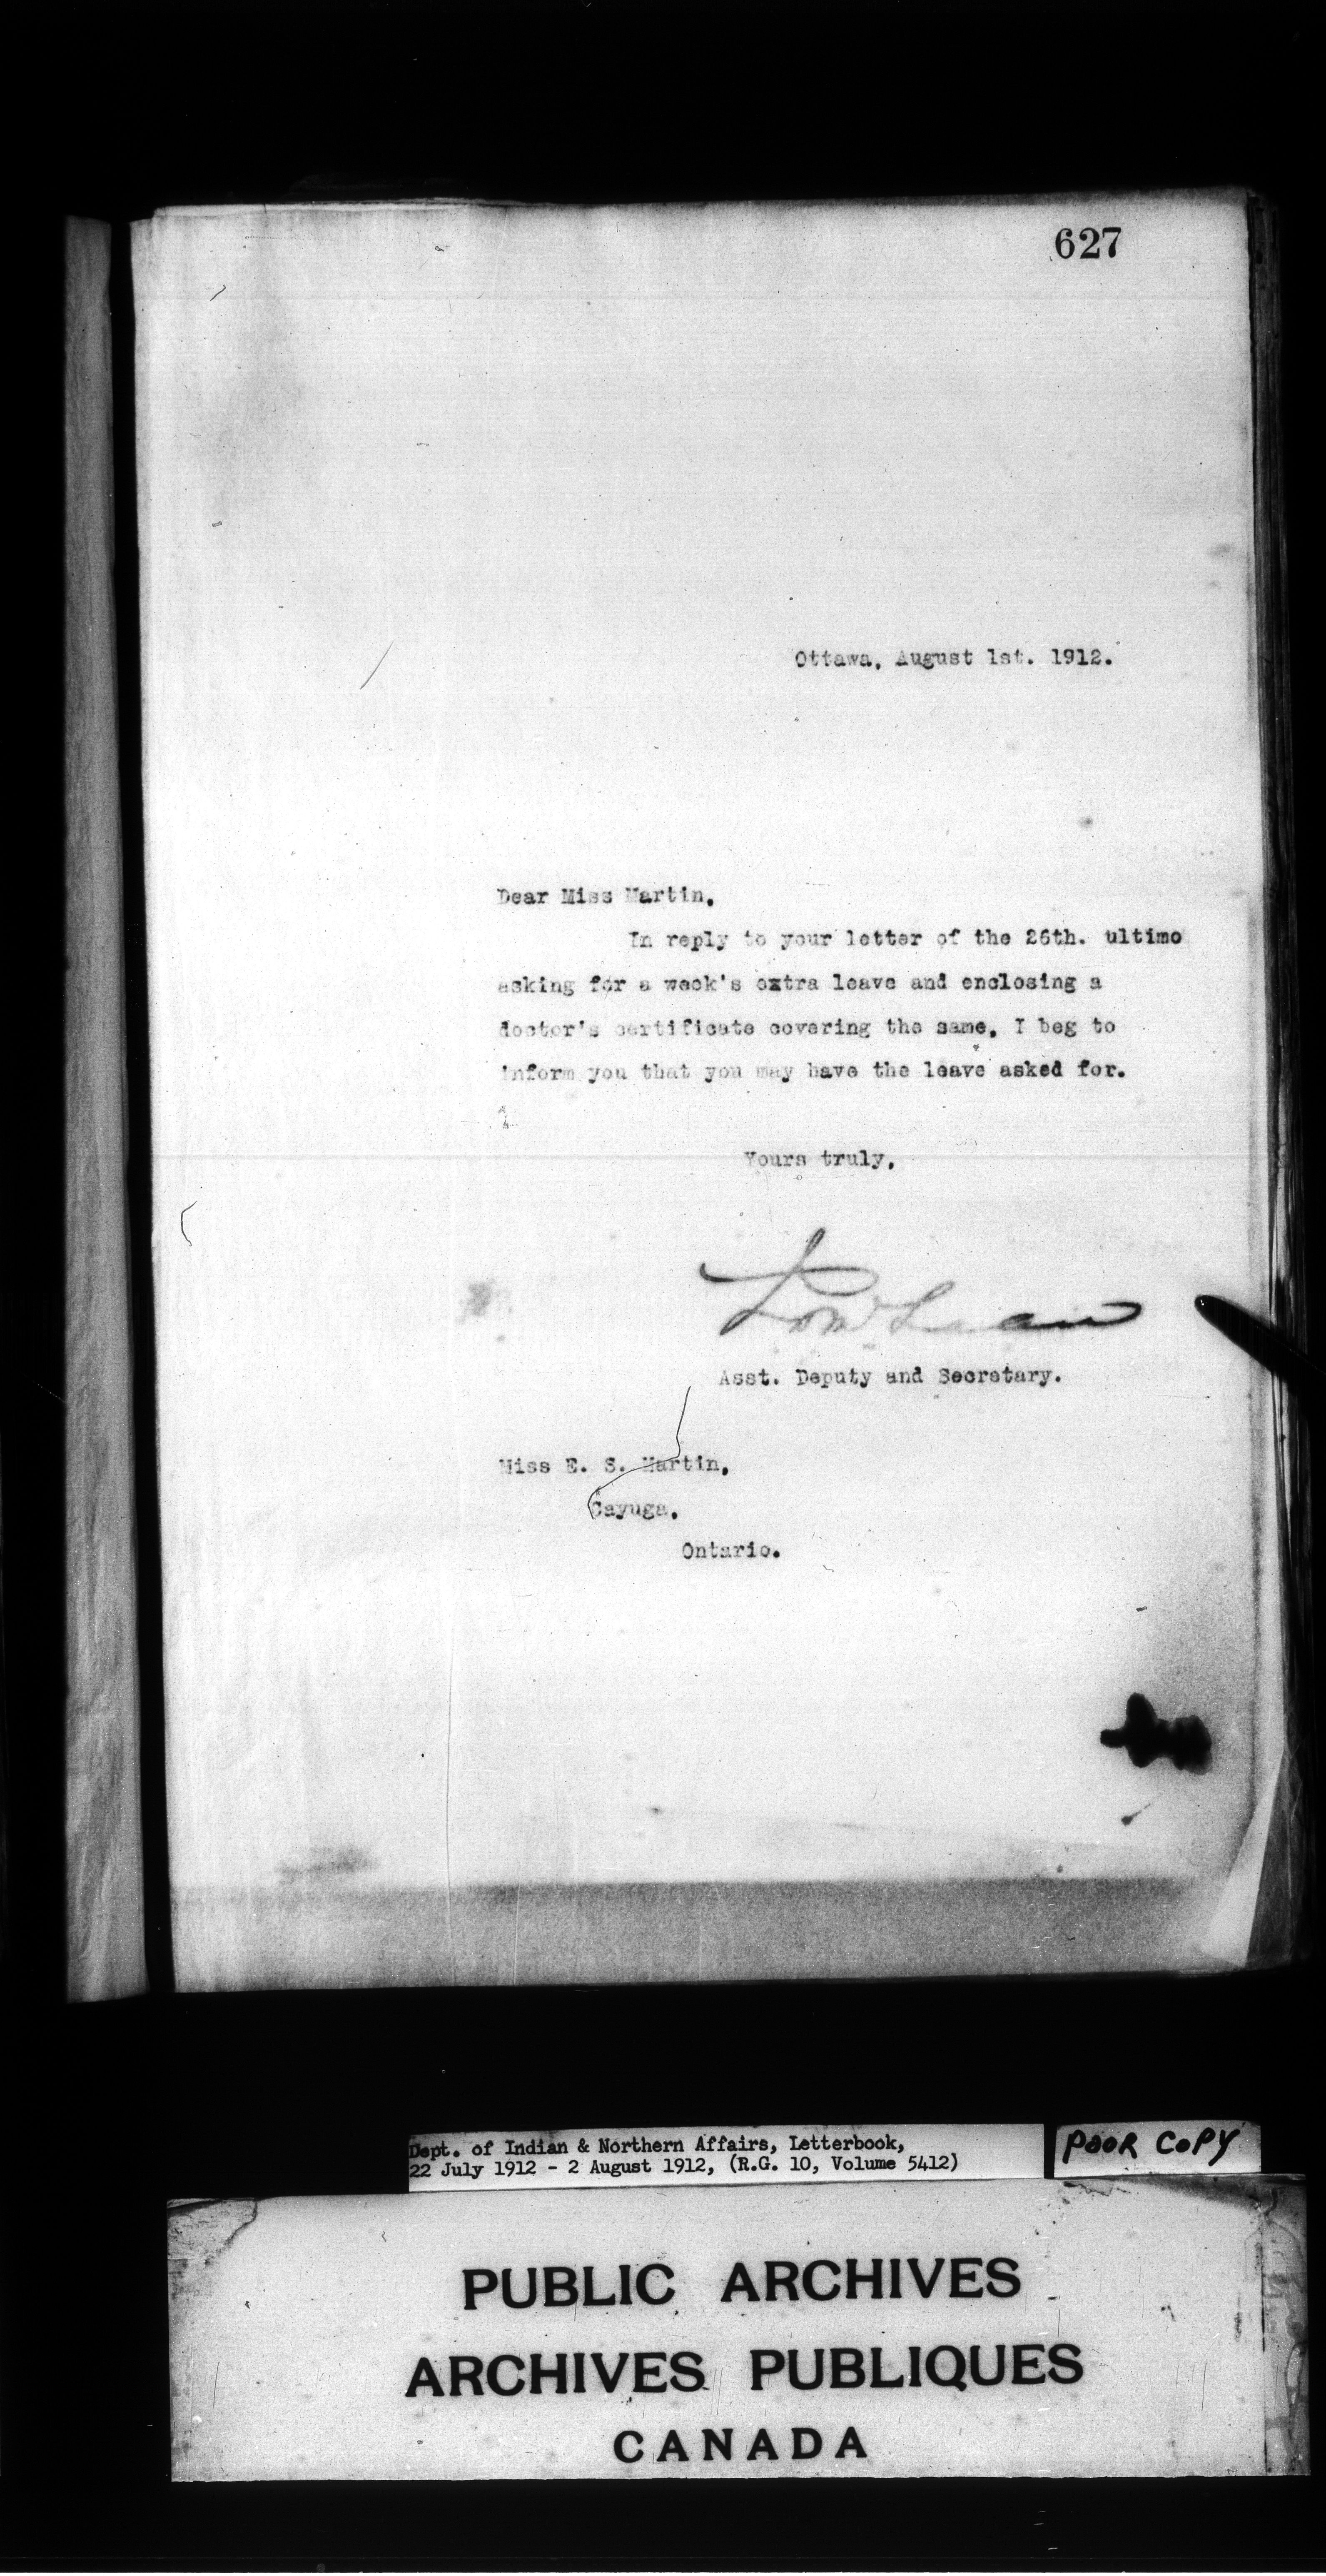 627
Ottawa, August 1st. 1912.
Dear Miss Martin,
In reply to your letter of the 26th. ultimo
asking for a week's extra leave and enclosing a
doctor's certificate covering the same, I beg to
inform you that you may have the leave asked for.
Yours truly,
Asst. Deputy and Secretary.
Miss E. S. Martin,
Cayuga,
Ontario.
Dept. of Indian & Northern Affairs, Letterbook,
22 July 1912 - 2 August 1912, (R.G. 10, Volume 5412)
POOR COPY
PUBLIC ARCHIVES
ARCHIVES PUBLIQUES
CANADA